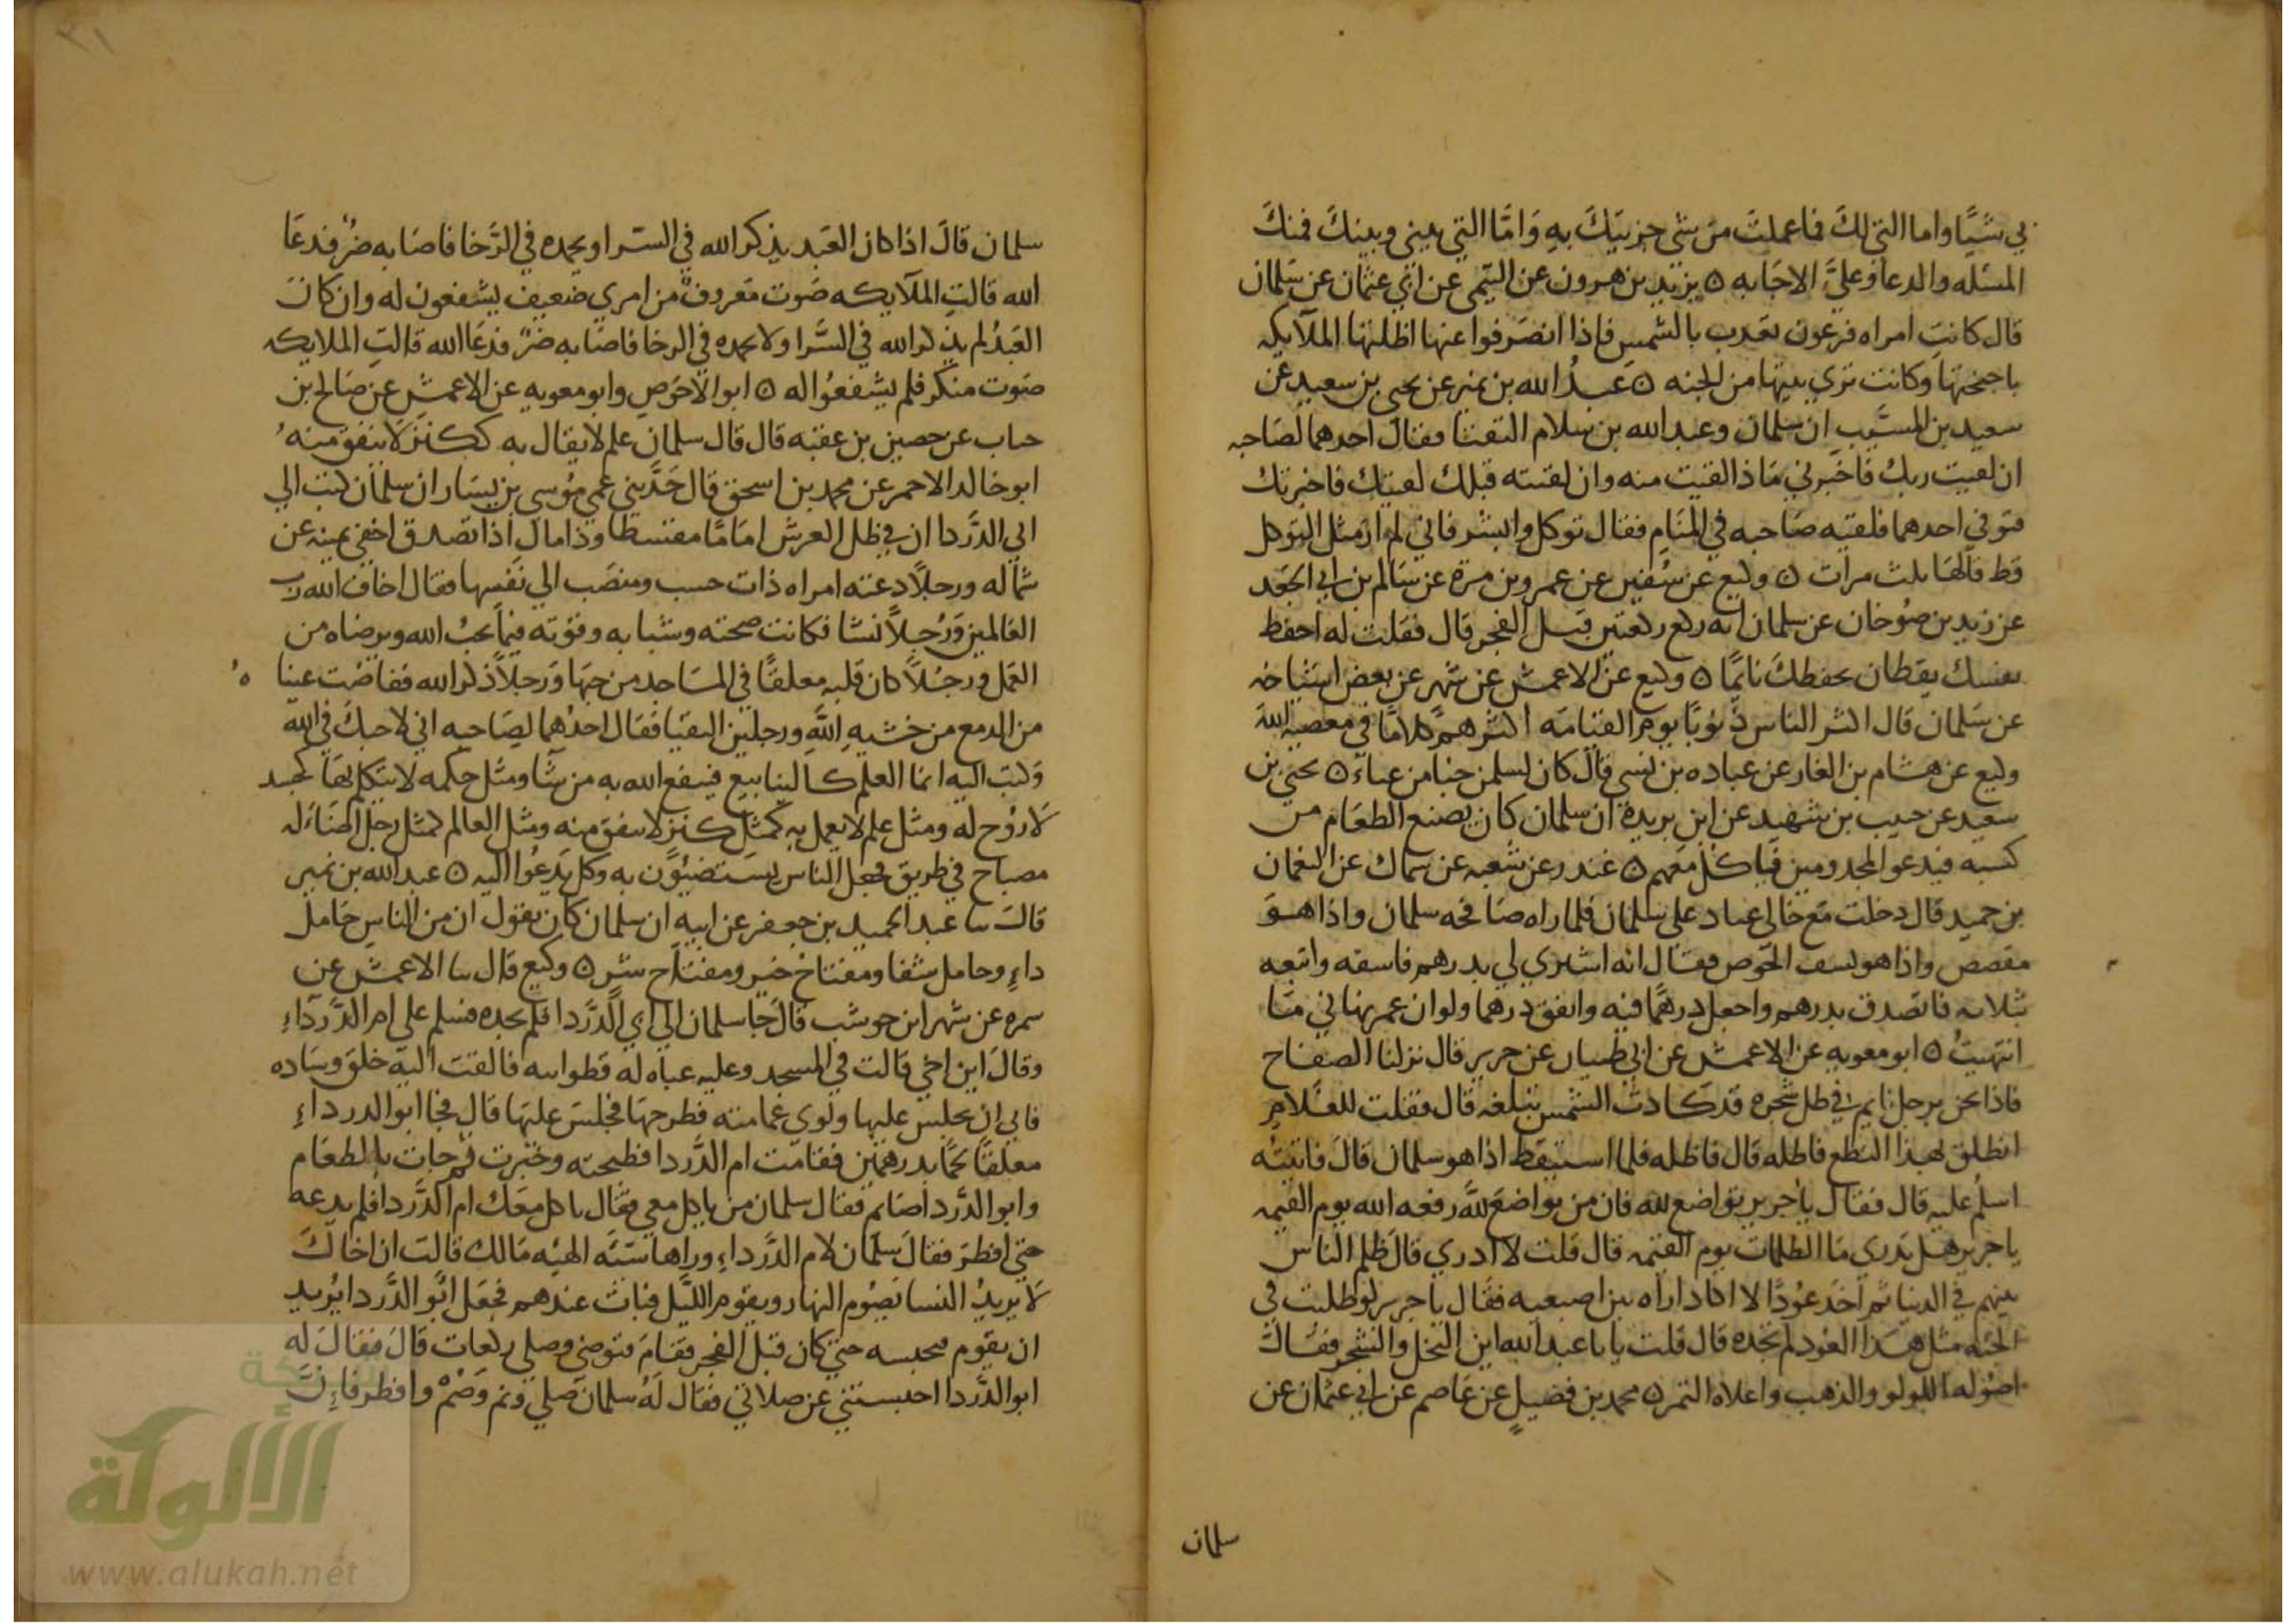 بي شيًا واما التي لك فما عملت من شي جزيتك به واما التي بيني وبينك فمنك
المسله والدعا وعليَّ الاجابه ٥ يزيد بن هرون عن التيمي عن ابي عثمان عن سلمان
قال كانت امراه فرعون تعذب بالشمس فاذا انصرفوا عنها اظلتها الملايكه
باجنحتها وكانت تري بيتها من الجنه ٥ عبدُ الله بن نمير عن يحيى بن سعيد عن
سعيد بن المسيَّب ان سلمان وعبد الله بن سلام التقتا فقال احدهما لصاحبه
ان لقيت ربك فاخبرني ماذا لقيت منه وان لقيته قبلك لقيتك فاخبرتك
فتوفي احدهما فلقيه صاحبه في المنام فقال توكل وابشر فاني لم ار مثل التوكل
قط قالها ثلث مرات ٥ وكيع عن سفين عن عمرو بن مرة عن سالم بن ابي الجعد
عن زيد بن صُوخان عن سلمان انه ركع ركعتين قبل الفجر قال فقلت له احفظ
نفسك يقظان يحفظك نايمًا ٥ وكيع عن الاعمش عن شهر عن بعض اشياخه
عن سلمان قال اكثر الناس ذنوبًا يوم القيامه اكثرهم كلامًا في معصيه الله
وكيع عن هشام بن الغاز عن عباده بن نسي قال كان لسلمن خبا من عباء ٥ يحيى بن
سعيد عن حبيب بن شهيد عن ابن بريدة ان سلمان كان يصنع الطعام من
كسبه فيدعو المجذومين فياكل معهم ٥ غندر عن شعبه عن سماك عن النعمان
بن حميد قال دخلت مع خالي عباد على سلمان فلما راه صافحه سلمان واذا هو
مقصص واذا هو يسف الخوص فقال انه اشتري لي بدرهم فاسفه وابيعه
بثلاثه فاتصدق بدرهم واجعل درهمًا فيه وانفق درهما ولو ان عمر نهاني ما
انتهيتُ ٥ ابو معويه عن الاعمش عن ابي ظبيان عن جرير قال نزلنا الصفاح
فاذا نحن برجل نايم في ظل شجره قد كادت الشمس تبلغه قال فقلت للغلام
انطلق بهذا النطع فاظله قال فاظله فلما استيقظ اذا هو سلمان قال فاتيته
اسلم عليه قال فقال يا جرير تواضع لله فان من تواضع لله رفعه الله يوم القيمه
يا جرير هل تدري ما الظلمات يوم القيمه قال قلت لا ادري قال ظلم الناس
بينهم في الدنيا ثم اخذ عودًا لا اكاد اراه بين اصبعيه فقال يا جرير لو طلبت في
الجنه مثل هذا العود لم تجده قال قلت يابا عبد الله اين النخل والشجر فقال
اصوله اللولو والذهب واعلاه التمر ٥ محمد بن فضيل عن عاصم عن ابي عثمان عن
سلمان
سلمان قال اذا كان العبد يذكر الله في السرا ويحمده في الرخا فاصابه ضر فدعا
الله قالت الملايكه صوت معروف من امري ضعيف ليشفعون له وان كان
العبد لم يذكر الله في السرا ولا يحمده في الرخا فاصابه ضر فدعا الله قالت الملايكه
صوت منكر فلم يشفعوا له ٥ ابو الاحوص وابو معويه عن الاعمش عن صالح بن
حباب عن حصين بن عقبه قال قال سلمان علم لا يقال به ككنز لا ينفق منه
ابو خالد الاحمر عن محمد بن اسحق قال حدثني عمي موسي بن يسار ان سلمان كتب الي
ابي الدردا ان في ظل العرش امامًا مقسطا وذا مال اذا تصدق اخفي يمينه عن
شماله ورجلاً دعته امراه ذات حسب ومنصب الي نفسها فقال اخاف الله رب
العالمين ورجلاً نشا فكانت صحبته وشبابه وقوته فيما يحب الله ويرضاه من
العمل ورجلاً كان قلبه معلقًا في المساجد من حبها ورجلاً ذكر الله ففاضت عينا ه
من الدمع من خشيه الله ورجلين التقيا فقال احدهما لصاحبه اني لاحبك في الله
وكتب اليه انما العلم كالينابيع فينفع الله به من شا ومثل حكمه لا يتكلم بها كجسد
لا روح له ومثل علم لا يعمل به كمثل كنز لا ينفق منه ومثل العالم كمثل رجل اضاء له
مصباح في طريق فجعل الناس يستضيئون به وكل يدعوا اليه ٥ عبد الله بن نمير
قال نا عبد الحميد بن جعفر عن ابيه ان سلمان كان يقول ان من الناس حامل
داءٍ وحامل شفا ومفتاح خير ومفتاح شر ٥ وكيع قال نا الاعمش عن
سمره عن شهر ابن حوشب قال جا سلمان الي ابي الدردا فلم يجده فسلم علي ام الدرداءِ
وقال اين اخي قالت في المسجد وعليه عباه له قطوانيه فالقت اليه خلق وساده
فابي ان يجلس عليها ولوي عمامته فطرحها فجلس عليها قال فجا ابو الدرداءِ
معلقًا لحمًا بدرهمين فقامت ام الدردا فطبخته وخبزت ثم جات بالطعام
وابو الدردا صايم فقال سلمان من ياكل معي فقال ياكل معك ام الدردا فلم يدعه
حتي افطر فقال سلمان لام الدرداءِ وراها سيئه الهيه مالك قالت ان اخاك
لا يريد النسا يصوم النهار ويقوم الليل فبات عندهم فجعل ابو الدردا يريد
ان يقوم فحبسه حتي كان قبل الفجر فقام فتوضي وصلي ركعات قال فقال له
ابو الدردا احبستني عن صلاتي فقال له سلمان صلي ونم وصم وافطر فان
شبكة
الألوكة
www.alukah.net